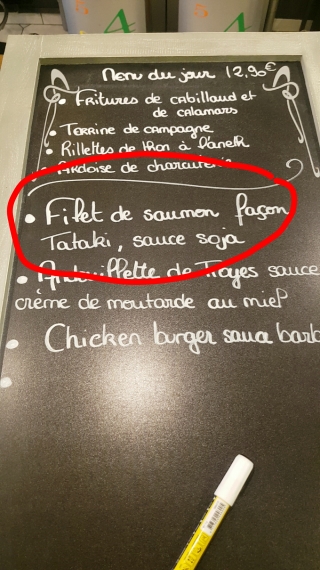 Menu du jour 12,90€
• Fritures de cabillaud et
de calamars
• Terrine de campagne
• Rillettes de thon à l'aneth
• Ardoise de charcuterie
• Filet de saumon façon
Tataki, sauce soja
• Andouillette de Troyes sauce
crème de moutarde au miel
• Chicken burger sauce barb
•